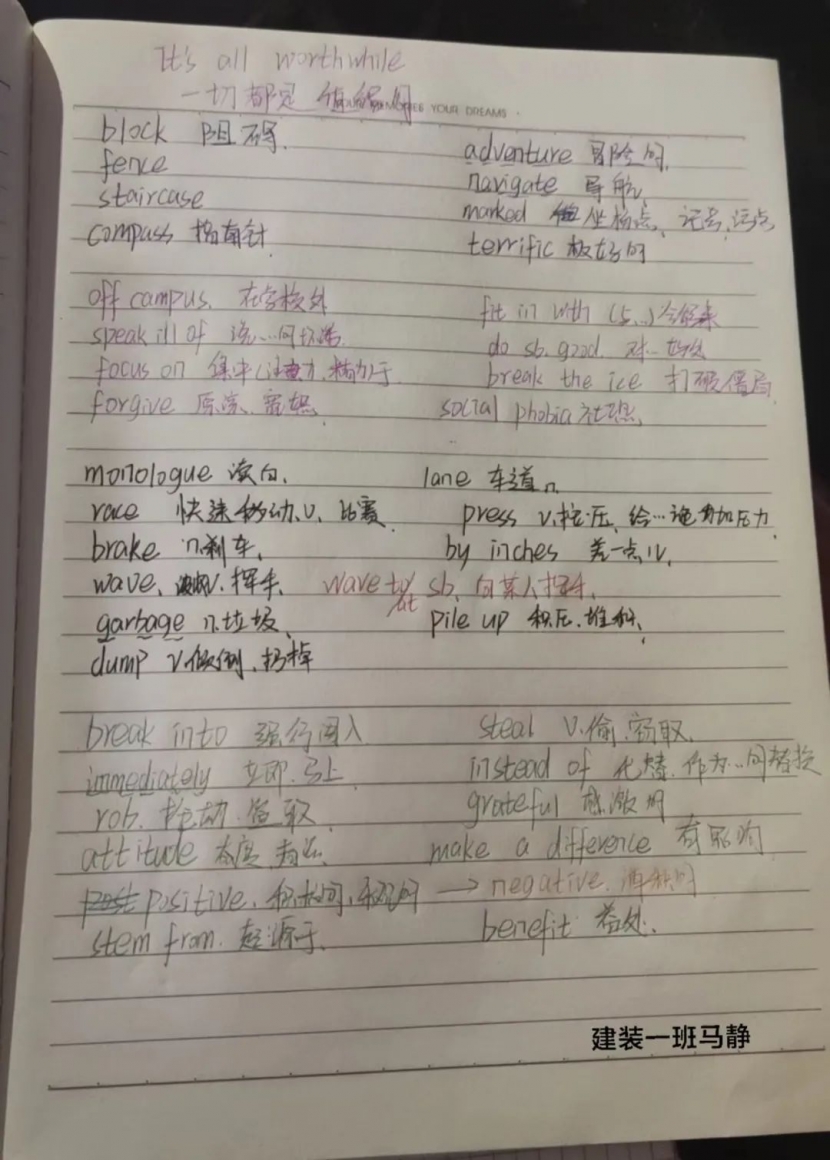 It's all worthwhile
一切都是值得的 YOUR DREAMS
block 阻碍. adventure 冒险的.
fence navigate 导航.
staircase marked 坐标点、记号,污点
compass 指南针 terrific 极好的
off campus. 在学校外 fit in with (与…)
speak ill of 说…的坏话. do sb. good. 对…
focus on 集中(注意力、精力)于 break the ice 打破僵局.
forgive 原谅、宽恕. social phobia 社恐.
monologue 读白. lane 车道n.
race 快速移动.v. 比赛 press v.按.压. 给…施加压力.
brake n.刹车. by inches 差一点儿.
wave. v.挥手. wave to/at sb. 向某人挥手.
garbage n.垃圾. pile up 积压.堆积.
dump v.倾倒.扔掉
break into 强行闯入 steal v.偷.窃取.
immediately 立即.马上 instead of 代替.作为…的替换
rob. 盗取 grateful 感激的
attitude 态度 make a difference 有影响
positive. 积极的. → negative. 消极的
stem from. 起源于. benefit 益处.
建装一班马静